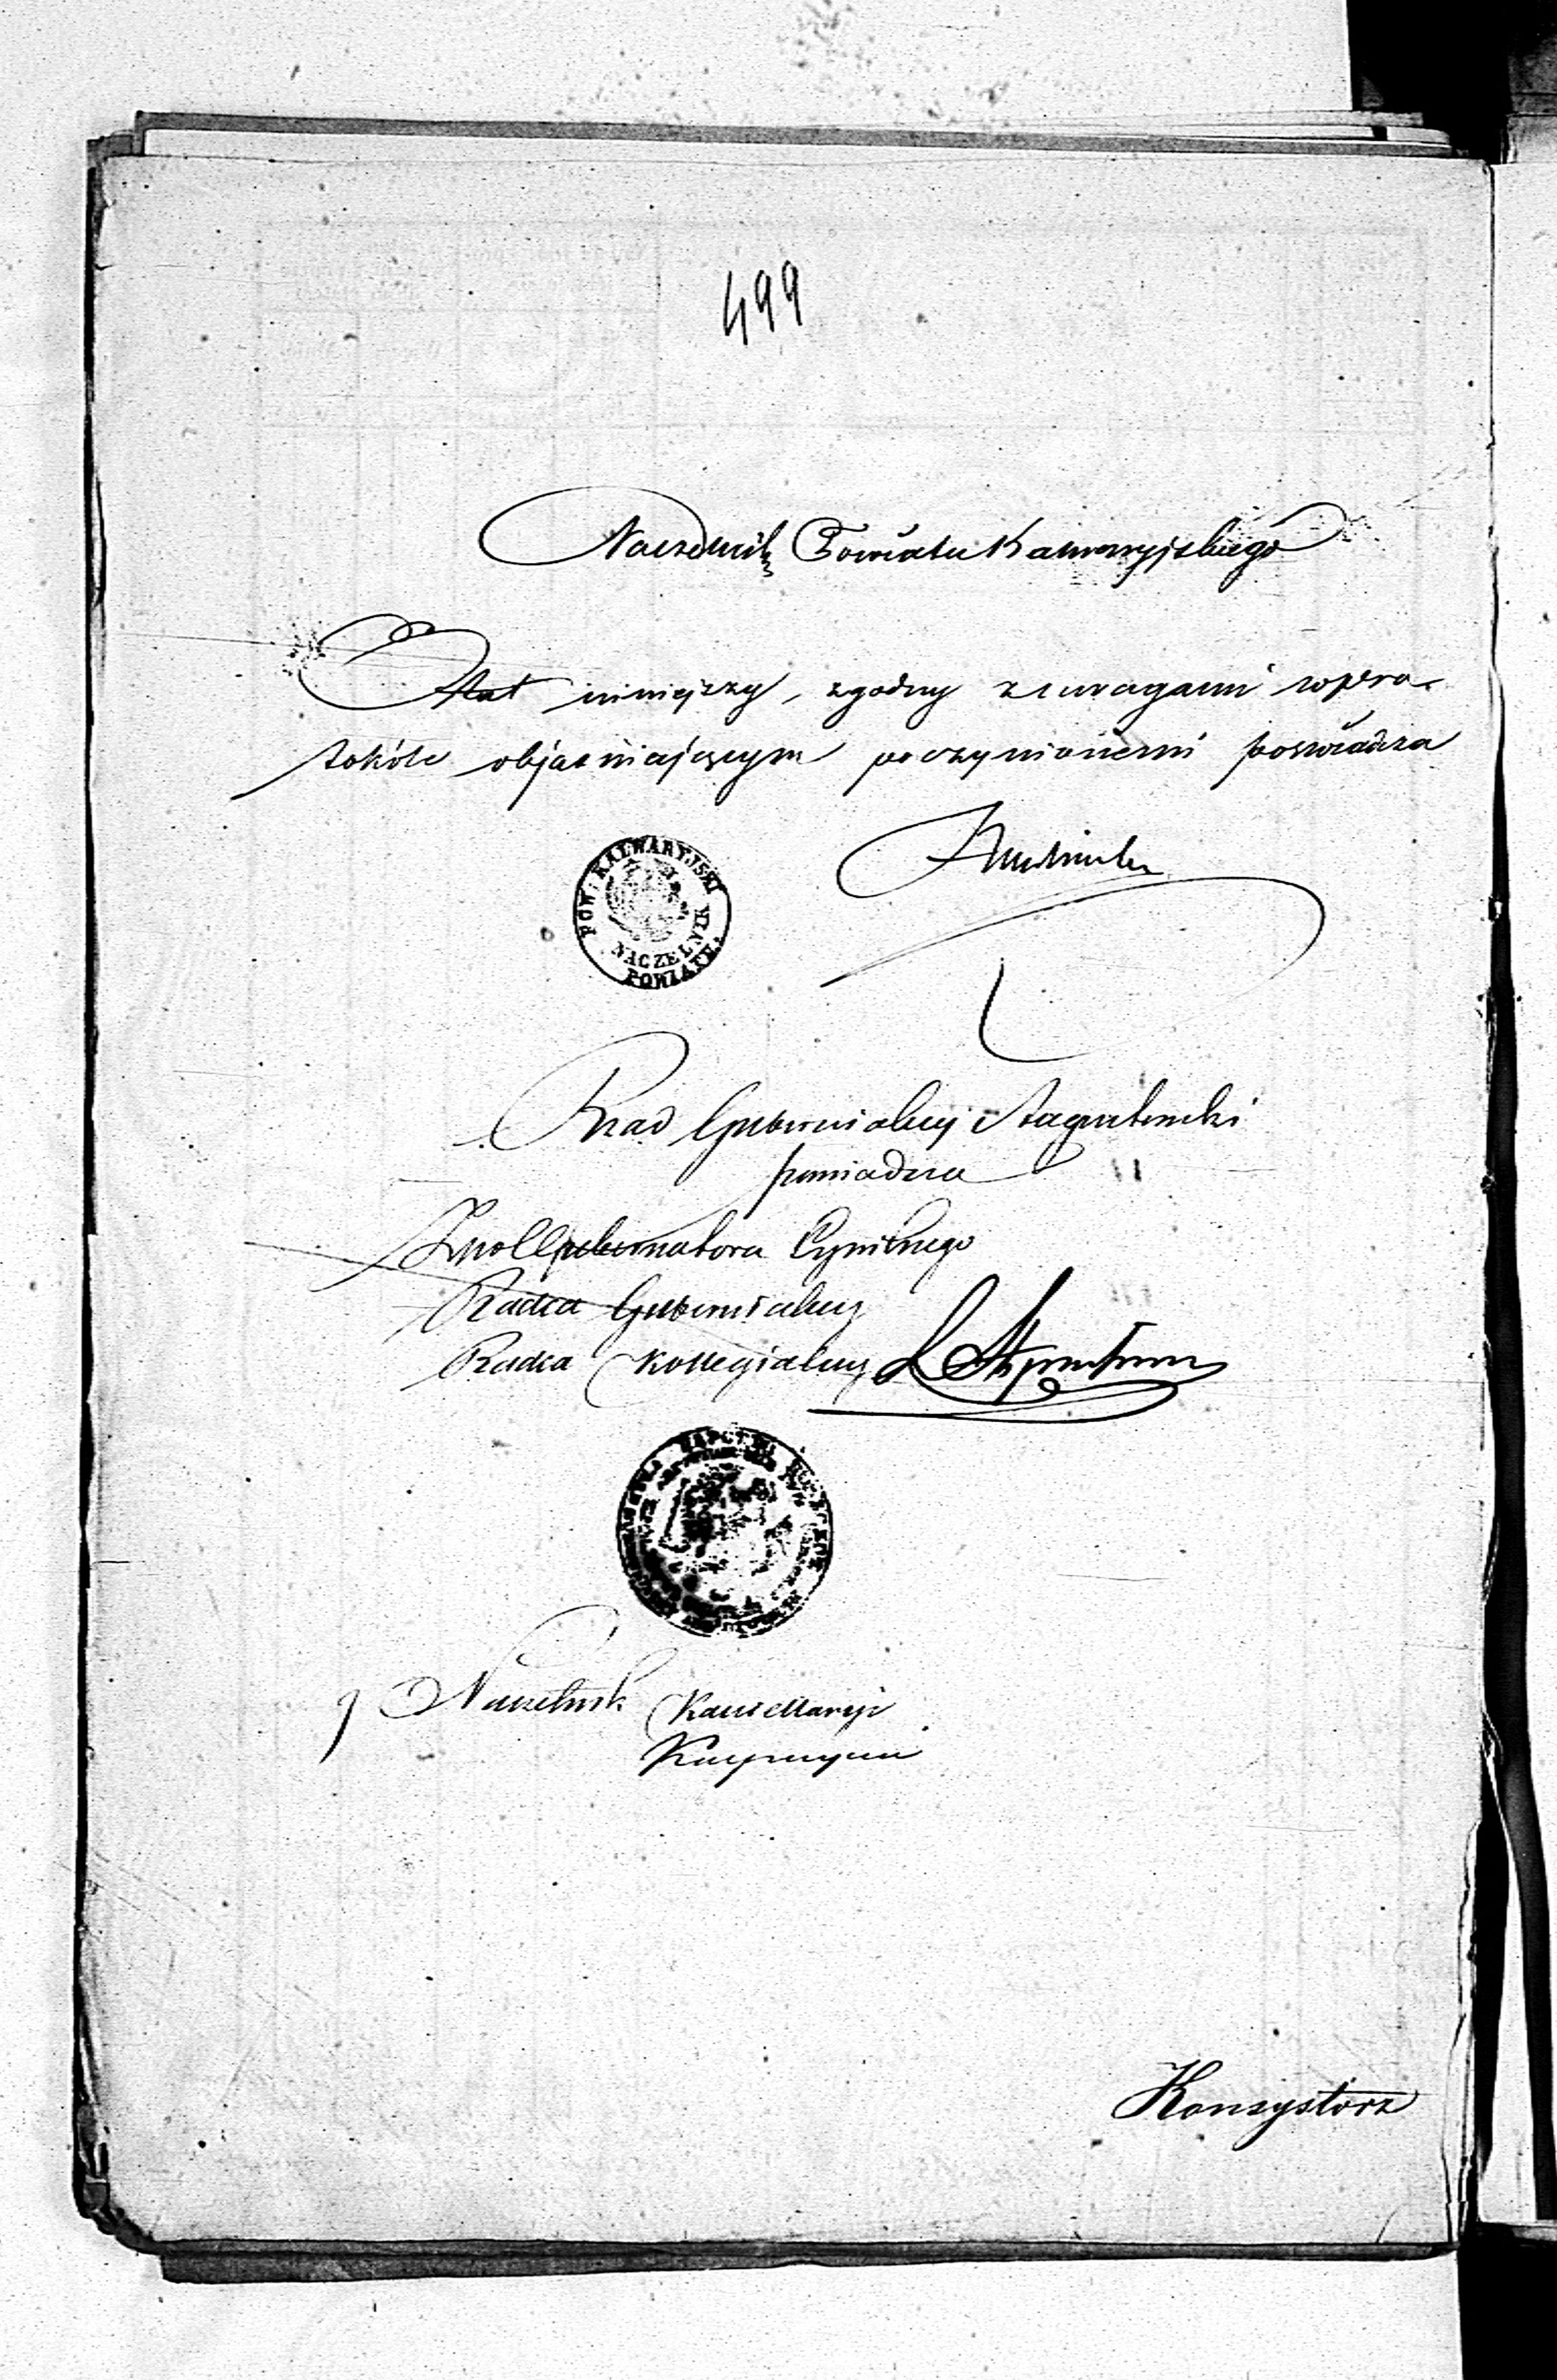 499
Naczelnik Powiatu Kalwaryjskiego
Etat niniejszy, zgodny z uwagami w pro-
tokóle objaśniającym poczynionemi poświadcza
POW: KALWARYJSKI
NACZELNIK
POWIATU
Rząd Gubernialny Augustowski
poświadcza
Gubernatora Cywilnego
Radca Gubernialny
Radca Kollegialny
Naczelnik Kancellaryi
Konsystorz